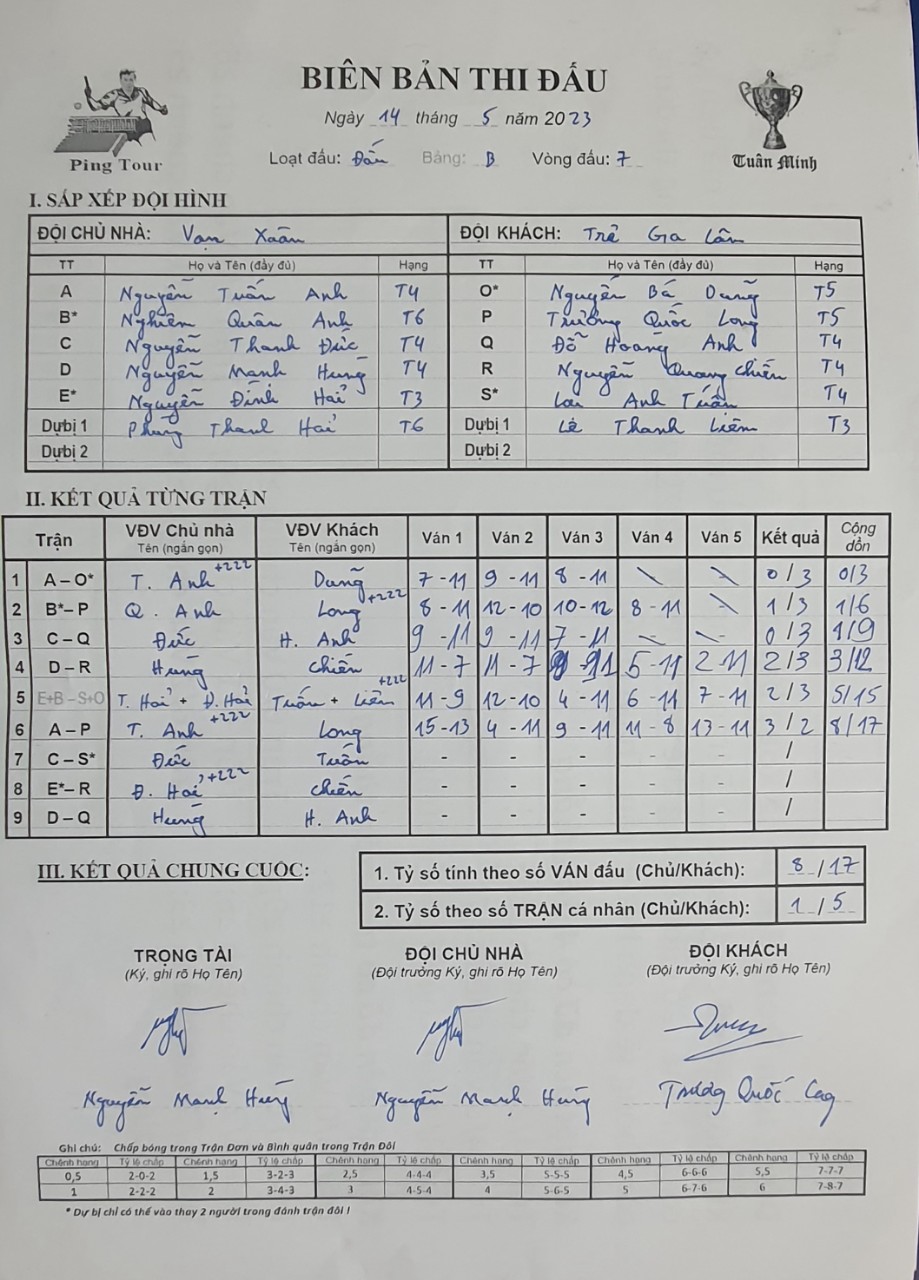 BIÊN BẢN THI ĐẤU
Ngày 14 tháng 5 năm 2023
Loạt đấu: Đấu Bảng: B Vòng đấu: 7
Ping Tour
Tuấn Minh
I. SẮP XẾP ĐỘI HÌNH
ĐỘI CHỦ NHÀ: Vạn Xuân ĐỘI KHÁCH: Trẻ Ga Lân
TT Họ và Tên (đầy đủ) Hạng TT Họ và Tên (đầy đủ) Hạng
A Nguyễn Tuấn Anh T4 O* Nguyễn Bá Dũng T5
B* Nghiêm Quân Anh T6 P Trương Quốc Long T5
C Nguyễn Thanh Đức T4 Q Đỗ Hoàng Anh T4
D Nguyễn Mạnh Hùng T4 R Nguyễn Quang Chiến T4
E* Nguyễn Đình Hải T3 S* Lại Anh Tuấn T4
Dự bị 1 Phùng Thanh Hải T6 Dự bị 1 Lê Thanh Liêm T3
Dự bị 2 Dự bị 2
II. KẾT QUẢ TỪNG TRẬN
Trận VĐV Chủ nhà Tên (ngắn gọn) VĐV Khách Tên (ngắn gọn) Ván 1 Ván 2 Ván 3 Ván 4 Ván 5 Kết quả Cộng dồn
1 A – O* T. Anh +222 Dũng 7 - 11 9 - 11 8 - 11 \ \ 0/3 0/3
2 B* – P Q. Anh Long +222 8 - 11 12 - 10 10 - 12 8 - 11 \ 1/3 1/6
3 C – Q Đức H. Anh 9 - 11 9 - 11 7 - 11 \ \ 0/3 1/9
4 D – R Hùng Chiến 11 - 7 11 - 7 9 - 11 5 - 11 2 - 11 2/3 3/12
5 E+B – S+O T. Hải + Đ. Hải Tuấn + Liêm +222 11 - 9 12 - 10 4 - 11 6 - 11 7 - 11 2/3 5/15
6 A – P T. Anh +222 Long 15 - 13 4 - 11 9 - 11 11 - 8 13 - 11 3/2 8/17
7 C – S* Đức Tuấn - - - - - /
8 E* – R Đ. Hải +222 Chiến - - - - - /
9 D – Q Hùng H. Anh - - - - - /
III. KẾT QUẢ CHUNG CUỘC:
1. Tỷ số tính theo số VÁN đấu (Chủ/Khách): 8/17
2. Tỷ số theo số TRẬN cá nhân (Chủ/Khách): 1/5
TRỌNG TÀI ĐỘI CHỦ NHÀ ĐỘI KHÁCH
(Ký, ghi rõ Họ Tên) (Đội trưởng Ký, ghi rõ Họ Tên) (Đội trưởng Ký, ghi rõ Họ Tên)
Nguyễn Mạnh Hùng Nguyễn Mạnh Hùng Trương Quốc
Ghi chú: Chấp bóng trong Trận Đơn và Bình quân trong Trận Đôi
Chênh hạng Tỷ lệ chấp Chênh hạng Tỷ lệ chấp Chênh hạng Tỷ lệ chấp Chênh hạng Tỷ lệ chấp Chênh hạng Tỷ lệ chấp Chênh hạng Tỷ lệ chấp
0,5 2-0-2 1,5 3-2-3 2,5 4-4-4 3,5 5-5-5 4,5 6-6-6 5,5 7-7-7
1 2-2-2 2 3-4-3 3 4-5-4 4 5-6-5 5 6-7-6 6 7-8-7
* Dự bị chỉ có thể vào thay 2 người trong đánh trận đôi !